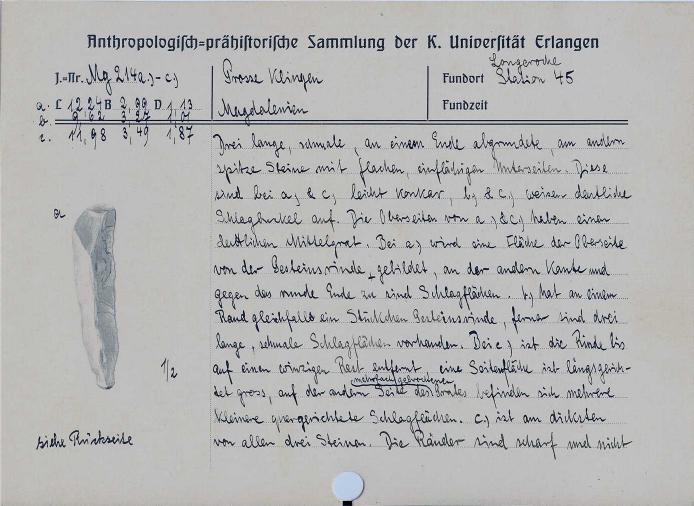 Anthropologisch=prähistorische Sammlung der K. Universität Erlangen
J.=Nr. Mg 214 a,) - c,)
Grosse Klingen
Fundort Longeroche
Station 45
a. L 12,24 B 2,99 D 1,13
Magdalenien
Fundzeit
b. 9,62 3,27 1,01
c. 11,98 3,49 1,87
Drei lange, schmale, an einem Ende abgerundete, am andern
spitze Steine mit flachen, einflächigen Unterseiten. Diese
sind bei a,) & c,) leicht konkav, b,) & c,) weisen deutliche
Schlagbuckel auf. Die Oberseiten von a,) & c,) haben einen
deutlichen Mittelgrat. Bei a,) wird eine Fläche der Oberseite
von der Gesteinsrinde gebildet, an der andern Kante und
gegen das runde Ende zu sind Schlagflächen. b,) hat an einem
Rand gleichfalls ein Stückchen Gesteinsrinde, ferner sind drei
lange, schmale Schlagflächen vorhanden. Bei c,) ist die Rinde bis
auf einen winzigen Rest entfernt, eine Seitenfläche ist längsgerich-
mehrfach gebrochenen
tet gross, auf der andern Seite des Grates befinden sich mehrere
kleinere quergerichtete Schlagflächen. c,) ist am dicksten
von allen drei Steinen. Die Ränder sind scharf und nicht
a
1/2
siehe Rückseite